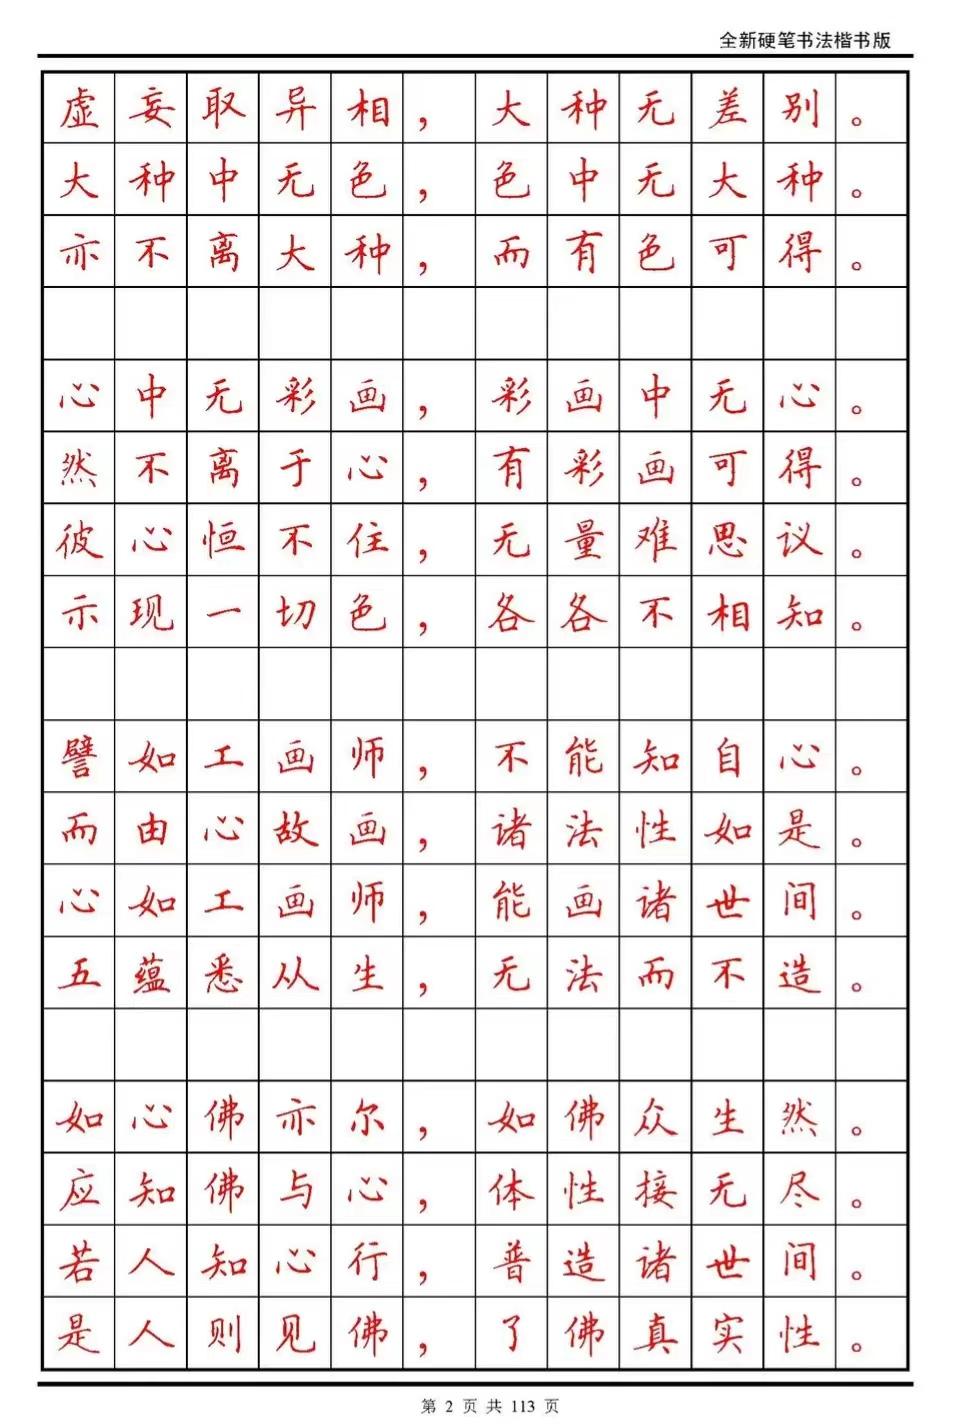 全新硬笔书法楷书版
虚妄取异相，大种无差别。
大种中无色，色中无大种。
亦不离大种，而有色可得。
心中无彩画，彩画中无心。
然不离于心，有彩画可得。
彼心恒不住，无量难思议。
示现一切色，各各不相知。
譬如工画师，不能知自心。
而由心故画，诸法性如是。
心如工画师，能画诸世间。
五蕴悉从生，无法而不造。
如心佛亦尔，如佛众生然。
应知佛与心，体性接无尽。
若人知心行，普造诸世间。
是人则见佛，了佛真实性。
第 2 页 共 113 页